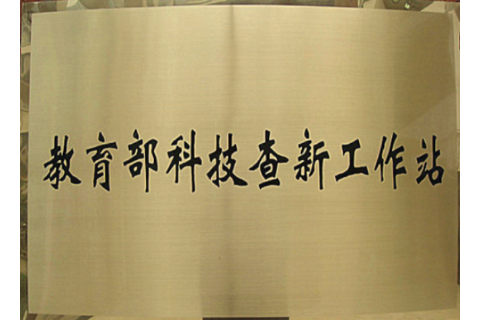 教育部科技查新工作站